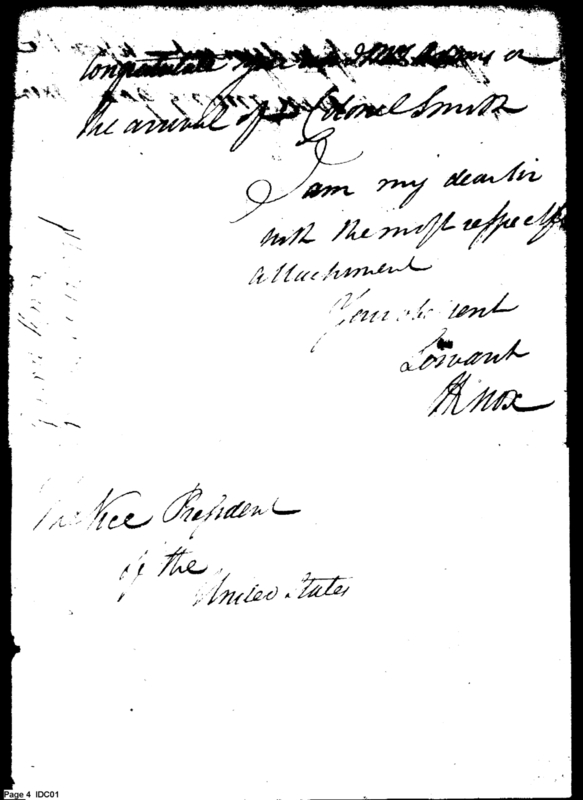 Congratulate you and Mrs Adams on
the arrival of Colonel Smith
I am my dear sir
with the most respectful
attachment
Your obedient
Servant
HKnox
The Vice President
of the
United States
Page 4 IDC01